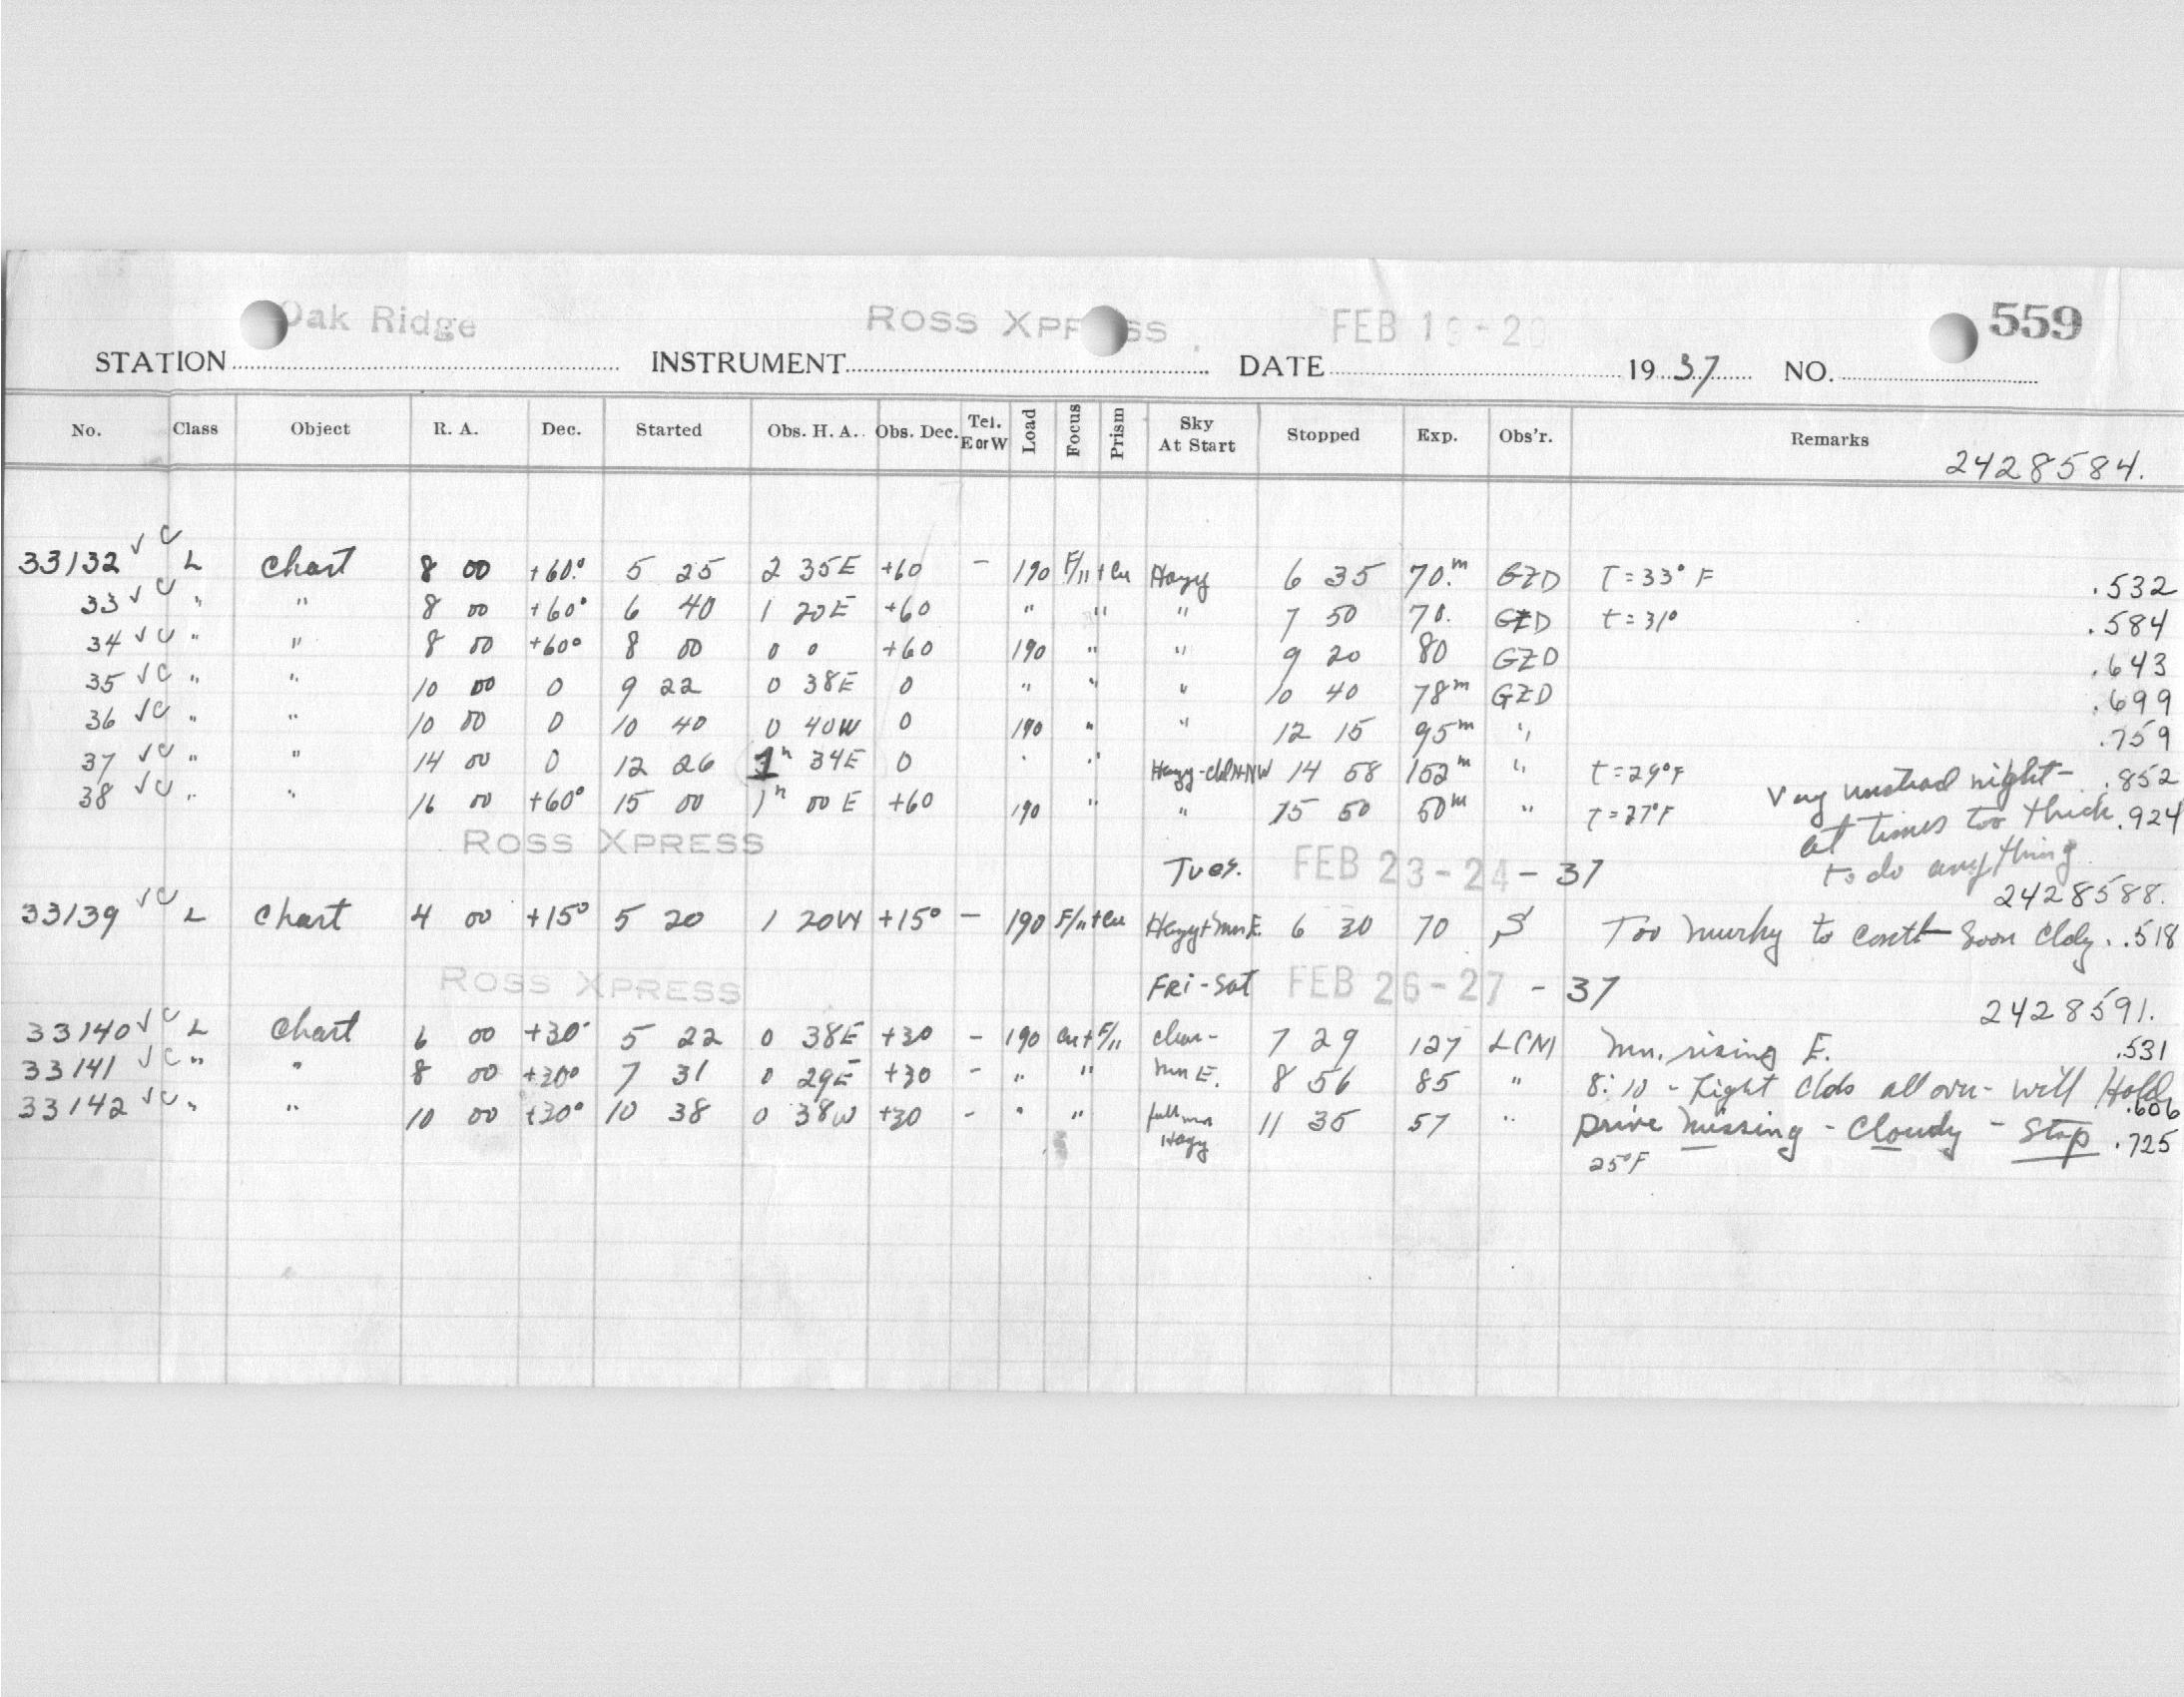 Oak Ridge ROSS XPRESS FEB 19-20 559
STATION INSTRUMENT DATE 1937 NO.
No. Class Object R. A. Dec. Started Obs. H. A. Obs. Dec. Tel. E or W Load Focus Prism Sky At Start Stopped Exp. Obs'r. Remarks
2428584.
33132 √ C L Chart 8 00 +60° 5 25 2 35E +60 - 190 F/11 + Cu Hazy 6 35 70.m GZD T=33° F .532
33 √ C " " 8 00 +60° 6 40 1 20E +60 " " " 7 50 70. GZD t=31° .584
34 √ C " " 8 00 +60° 8 00 0 0 +60 190 " " 9 20 80 GZD .643
35 √ C " " 10 00 0 9 22 0 38E 0 " " " 10 40 78m GZD .699
36 √ C " " 10 00 0 10 40 0 40W 0 190 " " 12 15 95m " .759
37 √ C " " 14 00 0 12 26 1h 34E 0 " " Hazy-cld N+NW 14 58 152m " t=29°F Very unstead night- .852
38 √ C " " 16 00 +60° 15 00 1h 00 E +60 190 " " 15 50 50m " t=27°F at times too thick .924
to do anything
ROSS XPRESS Tues. FEB 23-24 - 37
2428588.
33139 √ C L Chart 4 00 +15° 5 20 1 20W +15° - 190 F/11 + Cu Hazy + mn E. 6 30 70 S Too murky to cont - Soon Cldy. .518
ROSS XPRESS FRi - Sat FEB 26-27 - 37
2428591.
33140 √ C L Chart 6 00 +30° 5 22 0 38E +30 - 190 Cu + F/11 clear- 7 29 127 LCM Mn. rising E. .531
33141 √ C " " 8 00 +30° 7 31 0 29E +30 - " " mn E. 8 56 85 " 8:10 - Light Clds all over - will Hold .606
33142 √ C " " 10 00 +30° 10 38 0 38W +30 - " " full mn Hazy 11 35 57 " Drive missing - Cloudy - Stop .725
25°F